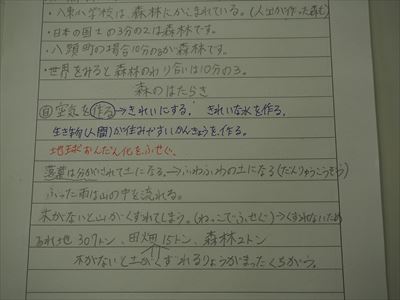 ・八東小学校は森林にかこまれている。(人工が作った森も)
・日本の国土の3分の2は森林です。
・八頭町の場合10分の8が森林です。
・世界をみると森林のわり合いは10分の3。
森のはたらき
自 空気を作る→きれいにする。きれいな水を作る。
生き物(人間)が住みやすいかんきょうを作る。
地球おんだん化をふせぐ。
落葉は分かいされて土になる。→ふわふわの土になる(だんりゅうこうぞう)
ふった雨は山の中を流れる。
木がないと山がくずれてしまう。(ねっこでふせぐ)→くずれないため
あれ地 307トン、田畑 15トン、森林2トン
木がないと土がくずれるりょうがまったくちがう。